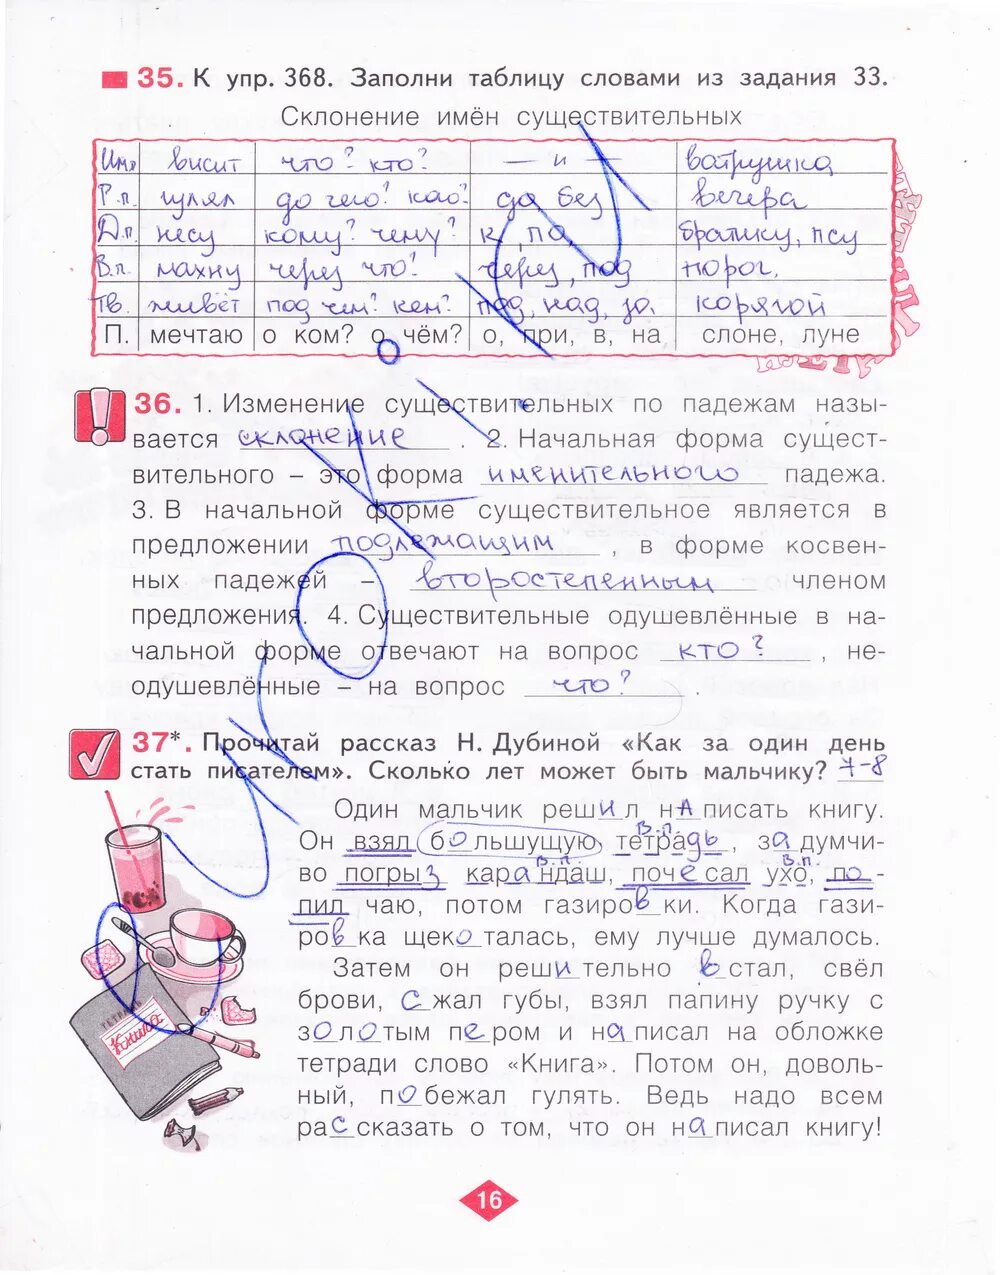 35. К упр. 368. Заполни таблицу словами из задания 33.
Склонение имён существительных
Им. висит что? кто? — и — ватрушка
Р.п. гулял до чего? кого? до, без вечера
Д.п. несу кому? чему? к, по, братику, псу
В.п. махну через что? через, под порог,
Тв. живёт под чем? кем? под, над, за, корягой
П. мечтаю о ком? о чём? о, при, в, на слоне, луне
36. 1. Изменение существительных по падежам назы-
вается склонение. 2. Начальная форма сущест-
вительного – это форма именительного падежа.
3. В начальной форме существительное является в
предложении подлежащим, в форме косвен-
ных падежей – второстепенным членом
предложения. 4. Существительные одушевлённые в на-
чальной форме отвечают на вопрос кто?, не-
одушевлённые – на вопрос что?.
37*. Прочитай рассказ Н. Дубиной «Как за один день
стать писателем». Сколько лет может быть мальчику? 7-8
Один мальчик решил написать книгу.
В.п.
Он взял большущую тетрадь, задумчи-
В.п. В.п.
во погрыз карандаш, почесал ухо, по-
пил чаю, потом газировки. Когда гази-
ровка щекоталась, ему лучше думалось.
Затем он решительно встал, свёл
брови, сжал губы, взял папину ручку с
золотым пером и написал на обложке
тетради слово «Книга». Потом он, доволь-
ный, побежал гулять. Ведь надо всем
рассказать о том, что он написал книгу!
ТЕТРАДЬ
Книга
16